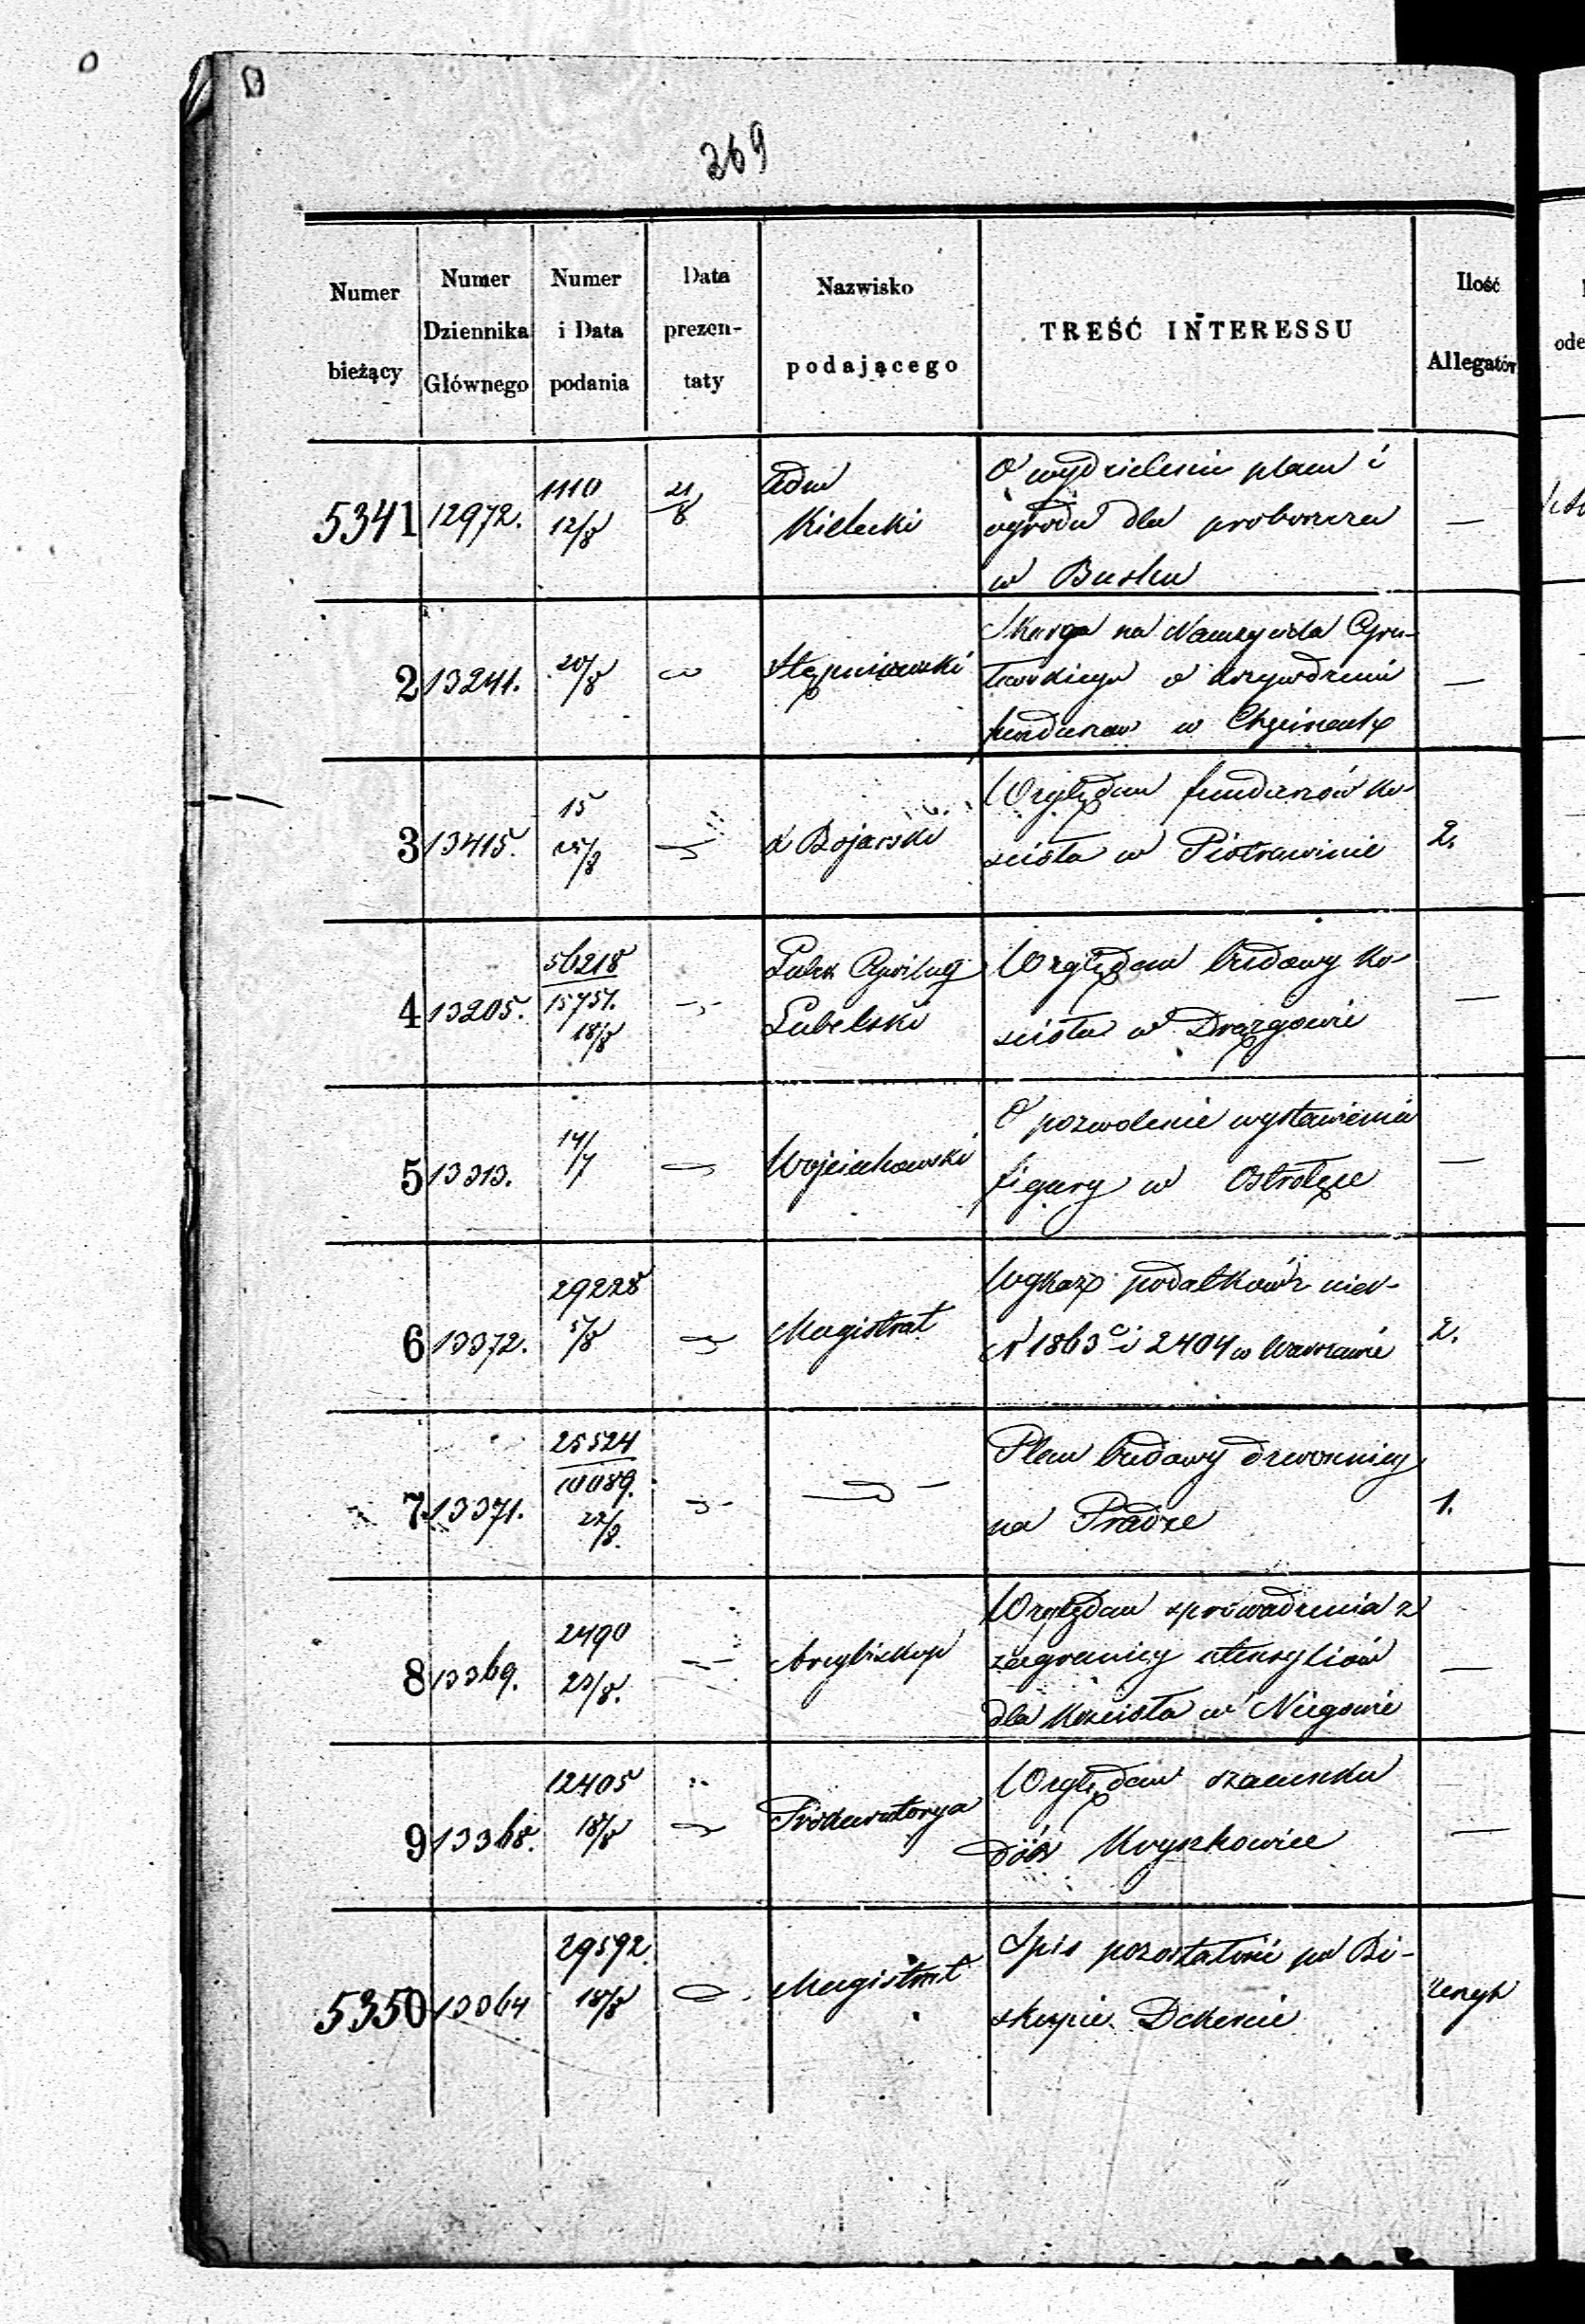 269
Numer bieżący
Numer Dziennika Głównego
Numer i Data podania
Data prezen-taty
Nazwisko podającego
TREŚĆ INTERESSU
Ilość Allegatów
5341 12972. 1110 12/8 21/8 Adm Kielecki
O wydzielenie placu i
ogrodu dla proboszcza —
w Busku
2 13241. 20/8 Stępniewski
Skarga na
w Chęcinach —
3 13415. 15 X Bojarski
Względem funduszów ko-
scioła w Piotrawinie 2.
4 13205. 56218 15751. 18/8 Lubelski
Względem budowy ko-
scioła w Drązgowie —
5 13313. 14/7 Wojciechowski
O pozwolenie wystawienia
figury w Ostrołęce —
6 13372. 29228 5/8 Magistrat
Wykazy podatków z nier.
N 1863 c i 2404 w Warszawie 2.
7 13371. 25524 10089. 22/8.
Plan budowy dzwonnicy
na Pradze 1.
8 13369. 2490 23/8. Arcybiskup
Względem sprowadzenia z
zagranicy utensyliów
dla kościoła w Niegowie —
9 13368. 12405 18/8 Prokuratorya
Względem szacunku
dóbr Kryszkowice —
5350 13364 29592. 18/8 Magistrat
Spis pozostałości po Bi-
skupie Dekercie zeszyt